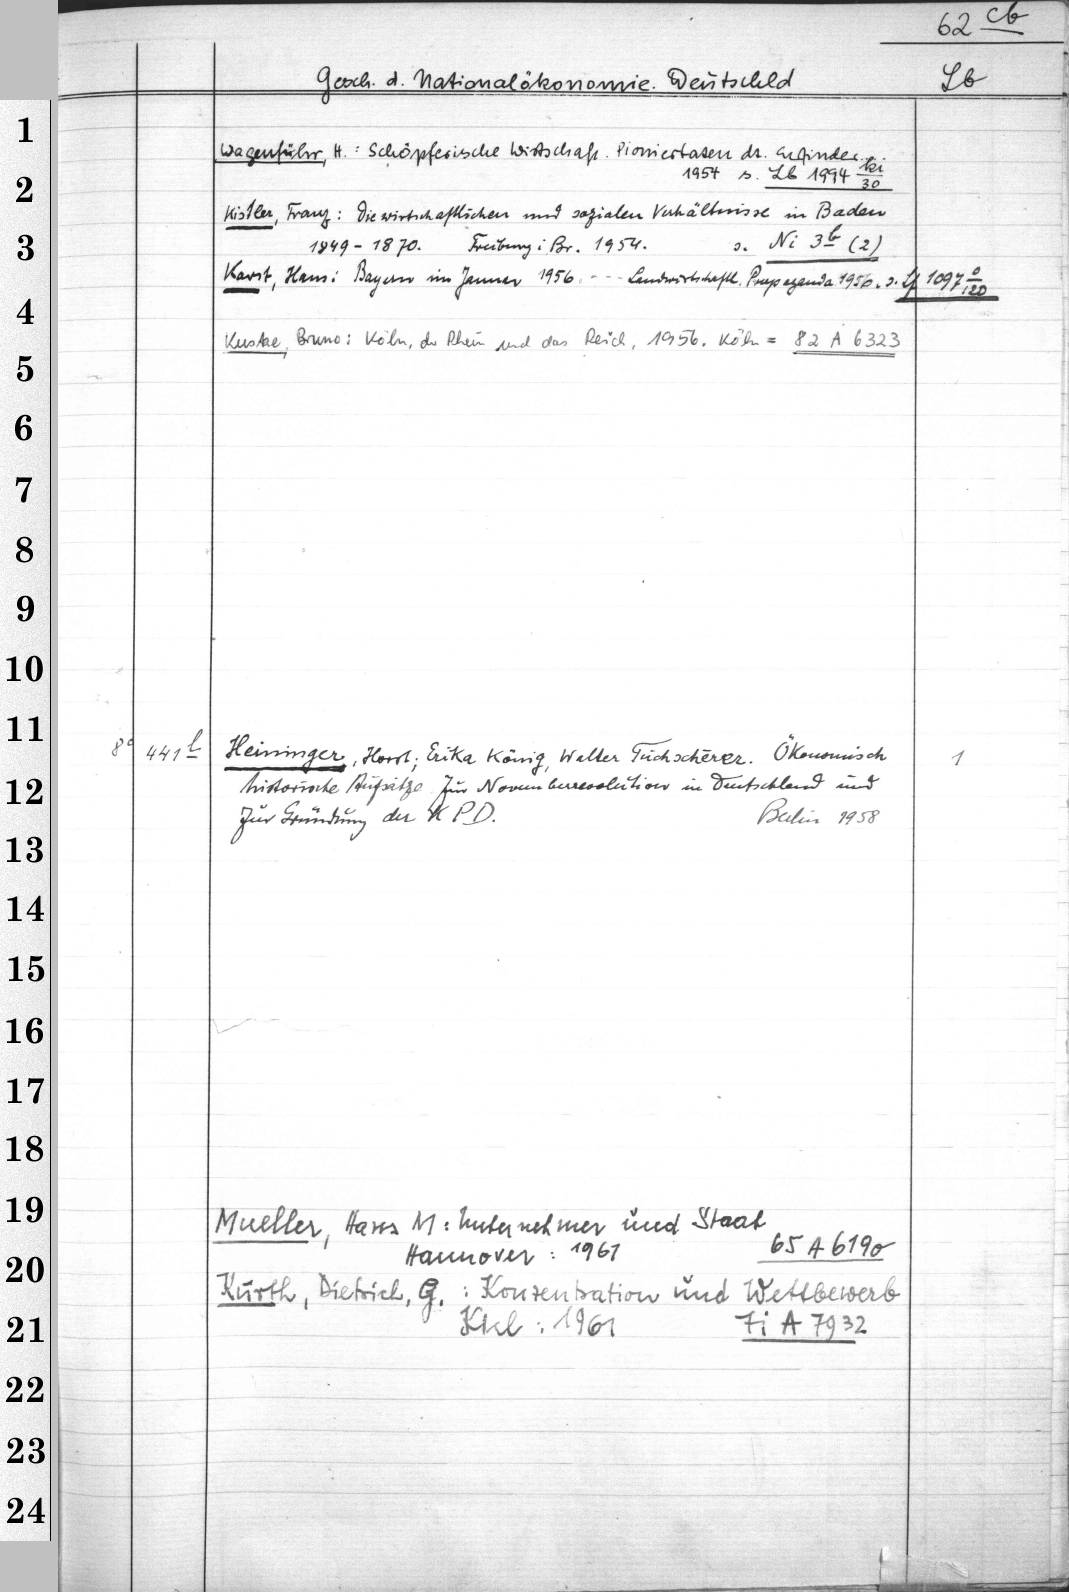 62 cb
Gesch. d. Nationalökonomie. Deutschld
Lb
1
Wagenführ, H. : Schöpferische Wirtschaft. Pioniertaten dt. Erfinder.
2
1954 s. Lb 1994 ki/30
Kistler, Franz : Die wirtschaftlichen und sozialen Verhältnisse in Baden
3
1849 - 1870. Freiburg i. Br. 1954. s. Ni 3b (2)
Karst, Hans : Bayern im Jänner 1956. - - - Landwirtschaftl. Propaganda 1956. s. Lf 1097 o/120
4
Kuske, Bruno : Köln, der Rhein und das Reich, 1956. Köln = 82 A 6323
5
6
7
8
9
10
11
8° 441 l Heininger, Horst; Erika König, Walter Tuchscherer. Ökonomisch 1
12
historische Aufsätze zur Novemberrevolution in Deutschland und
zur Gründung der KPD. Berlin 1958
13
14
15
16
17
18
19
Mueller, Hans M : Unternehmer und Staat
Hannover : 1961 65 A 6190
20
Kurth, Dietrich, G. : Konzentration und Wettbewerb
21
Kiel : 1961 7i A 7932
22
23
24